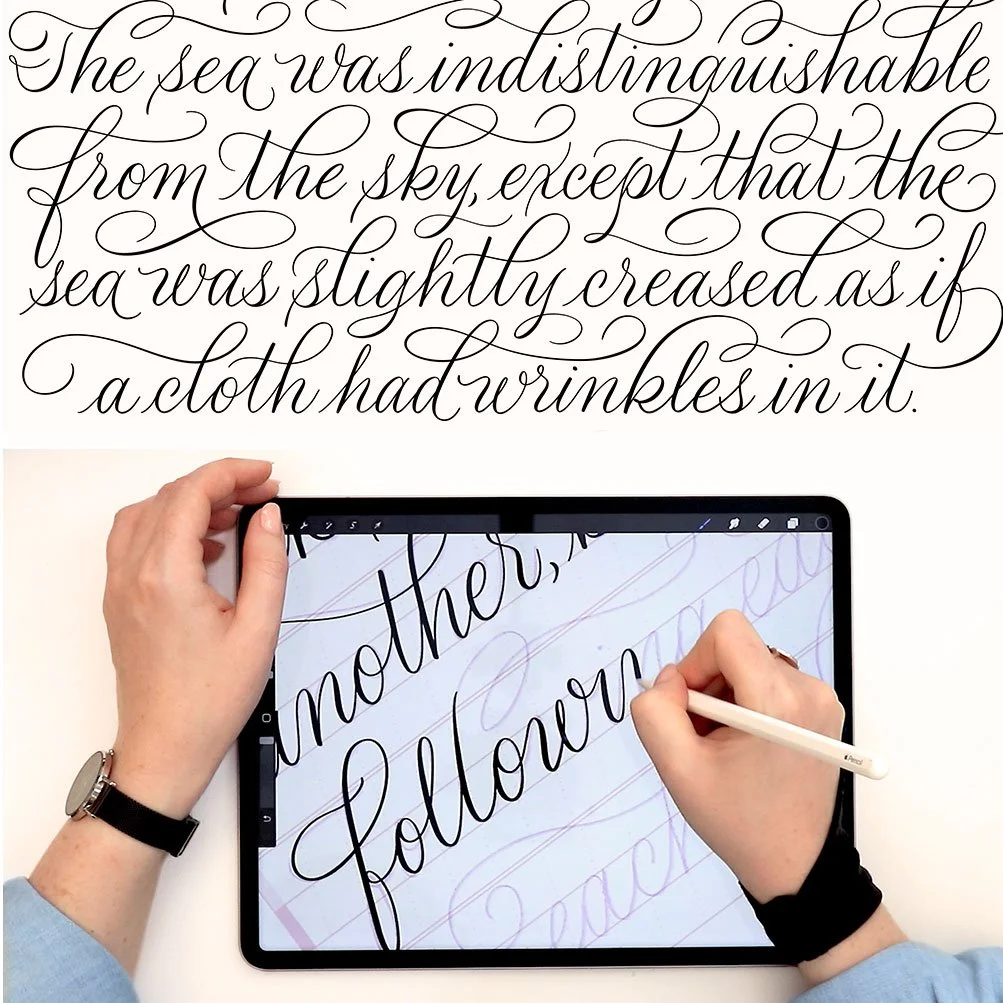 The sea was indistinguishable
from the sky, except that the
sea was slightly creased as if
a cloth had wrinkles in it.
another,
followin
each
Pencil